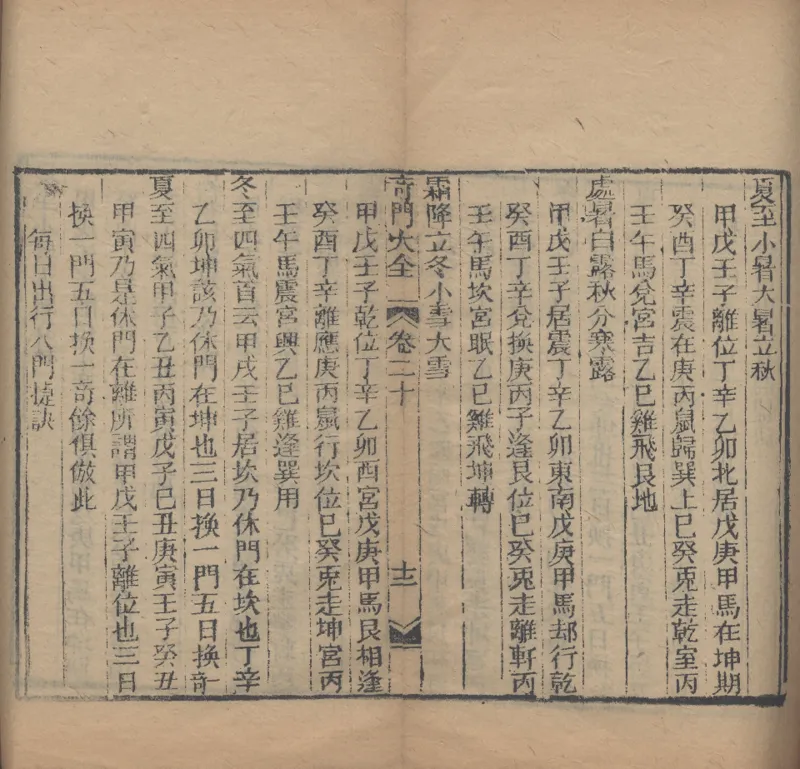 夏至小暑大暑立秋
甲戊壬子離位丁辛乙卯北居戊庚甲馬在坤期
癸酉丁辛震在庚丙鼠歸巽上巳癸兎走乾室丙
壬午馬兌宮吉乙巳雞飛艮地
處暑白露秋分寒露
甲戊壬子居震丁辛乙卯東南戊庚甲馬却行乾
癸酉丁辛兌換庚丙子逢艮位巳癸兎走離軒丙
壬午馬坎宮眠乙巳雞飛坤轉
霜降立冬小雪大雪
甲戊壬子乾位丁辛乙卯酉宮戊庚甲馬艮相逢
奇門大全 卷二十 十二
癸酉丁辛離應庚丙鼠行坎位巳癸兎走坤宮丙
壬午馬震宮興乙巳雞逢巽用
冬至四氣首云甲戌壬子居坎乃休門在坎也丁辛
乙卯坤該乃休門在坤也三日換一門五日換一奇
夏至四氣甲子乙丑丙寅戊子巳丑庚寅壬子癸丑
甲寅乃是休門在離所謂甲戊壬子離位也三日
換一門五日換一奇餘俱倣此
每日出行八門捷訣